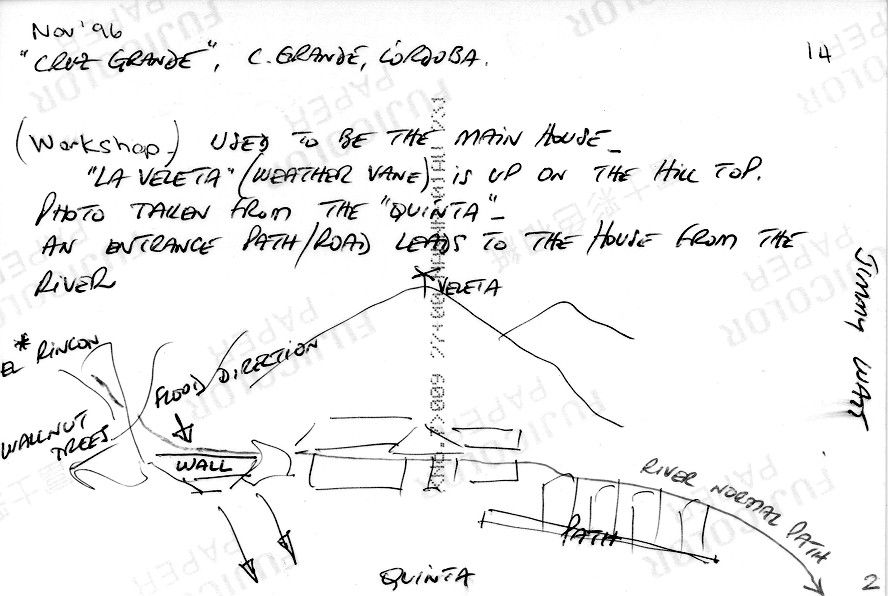 Nov '96
14
"CRUZ GRANDE", C. GRANDE, CÓRDOBA.
(Workshop) USED TO BE THE MAIN HOUSE_
"LA VELETA" (WEATHER VANE) IS UP ON THE HILL TOP.
PHOTO TAKEN FROM THE "QUINTA"_
AN ENTRANCE PATH/ROAD LEADS TO THE HOUSE FROM THE
RIVER
VELETA
* EL RINCON
FLOOD DIRECTION
WALLNUT
TREES
WALL
RIVER NORMAL PATH
PATH
QUINTA
2
Jimmy WATT
FUJICOLOR
PAPER